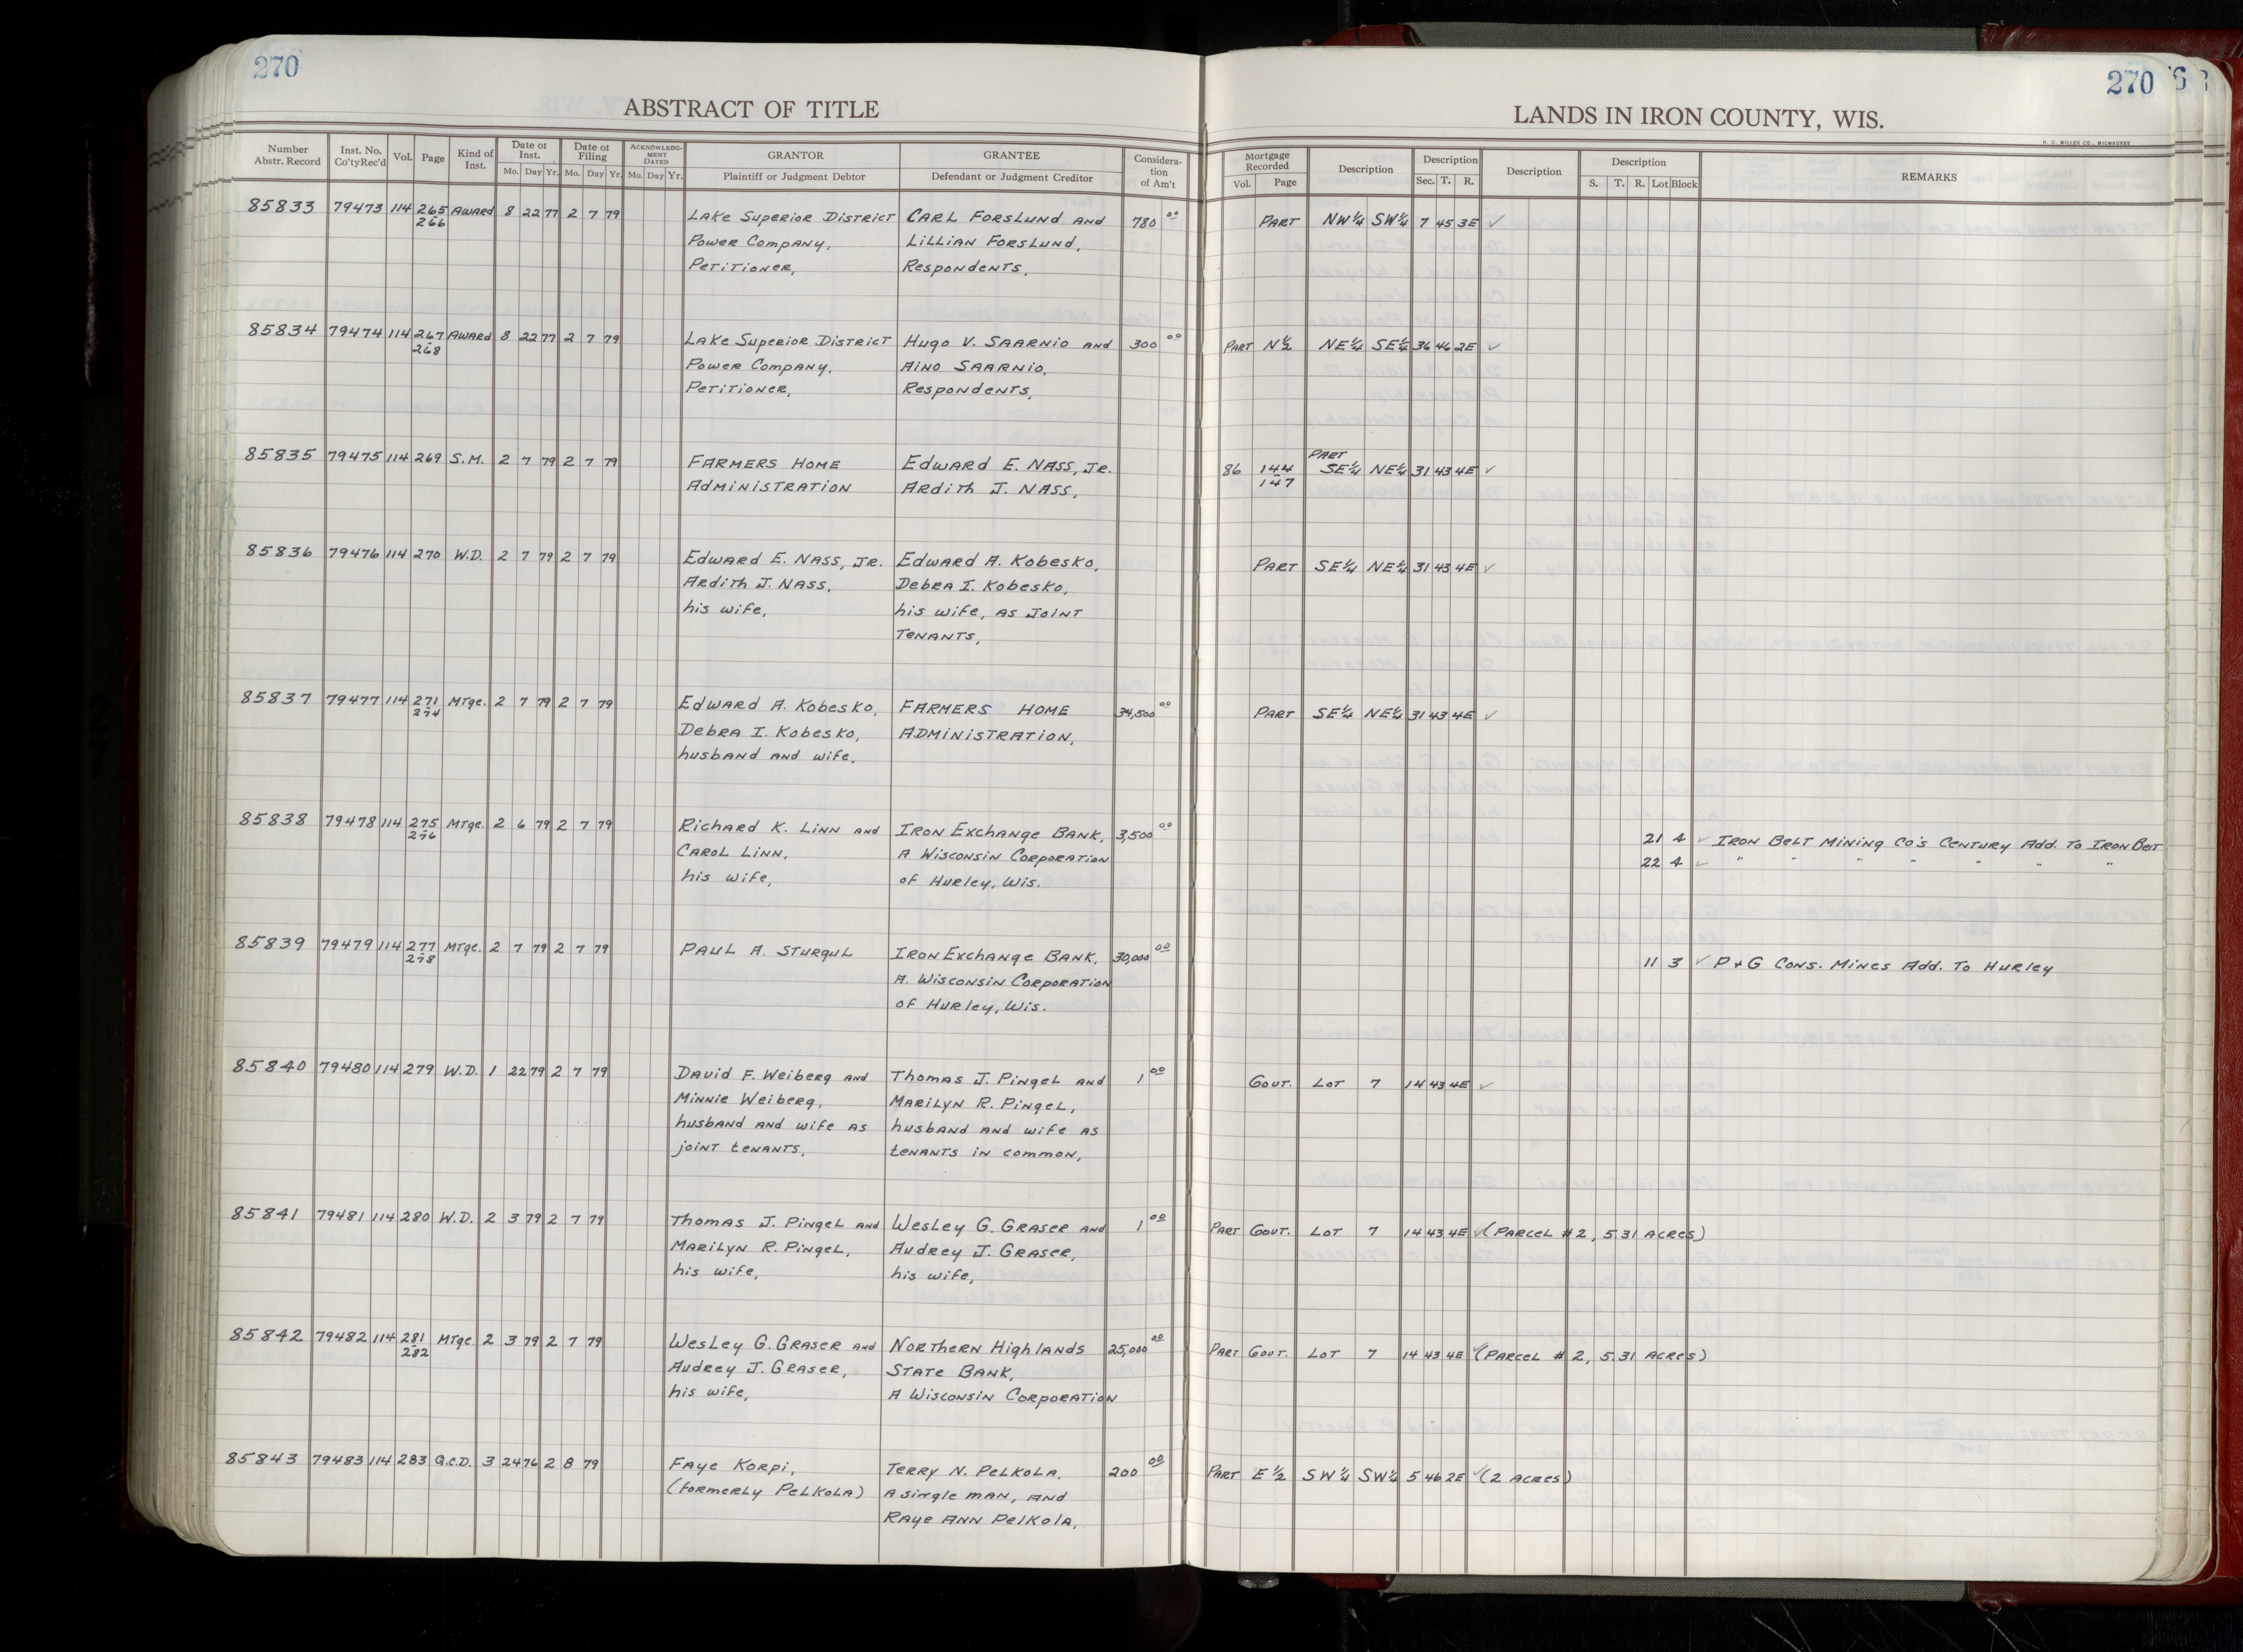 270
ABSTRACT OF TITLE
Number Abstr. Record | Inst. No. Co'ty Rec'd | Vol. | Page | Kind of Inst. | Date of Inst. Mo. Day Yr. | Date of Filing Mo. Day Yr. | ACKNOWLEDG-MENT DATED Mo. Day Yr. | GRANTOR Plaintiff or Judgment Debtor | GRANTEE Defendant or Judgment Creditor | Considera-tion of Am't
270
LANDS IN IRON COUNTY, WIS.
H. C. MILLER CO., MILWAUKEE
Mortgage Recorded Vol. Page | Description | Description Sec. T. R. | Description | Description S. T. R. Lot Block | REMARKS
85833 79473 114 265 Award 8 22 77 2 7 79 Lake Superior District Carl Forslund and 780 00 Part NW¼ SW¼ 7 45 3E ✓
266 Power Company, Lillian Forslund,
Petitioner, Respondents,
85834 79474 114 267 Award 8 22 77 2 7 79 Lake Superior District Hugo V. Saarnio and 300 00 Part N½ NE¼ SE¼ 36 46 2E ✓
268 Power Company, Aino Saarnio,
Petitioner, Respondents,
85835 79475 114 269 S.M. 2 7 79 2 7 79 Farmers Home Edward E. Nass, Jr. 86 144 Part SE¼ NE¼ 31 43 4E ✓
Administration Ardith J. Nass, 147
85836 79476 114 270 W.D. 2 7 79 2 7 79 Edward E. Nass, Jr. Edward A. Kobesko, Part SE¼ NE¼ 31 43 4E ✓
Ardith J. Nass, Debra I. Kobesko,
his wife, his wife, as Joint
Tenants,
85837 79477 114 271 Mtge. 2 7 79 2 7 79 Edward A. Kobesko, Farmers Home 34,500 00 Part SE¼ NE¼ 31 43 4E ✓
274 Debra I. Kobesko, Administration,
husband and wife,
85838 79478 114 275 Mtge. 2 6 79 2 7 79 Richard K. Linn and Iron Exchange Bank, 3,500 00 21 4 ✓ Iron Belt Mining Co's Century Add. To Iron Belt
276 Carol Linn, A Wisconsin Corporation 22 4 ✓ " " " " " " "
his wife, of Hurley, Wis.
85839 79479 114 277 Mtge. 2 7 79 2 7 79 Paul A. Sturgul Iron Exchange Bank, 30,000 00 11 3 ✓ P+G Cons. Mines Add. To Hurley
278 A. Wisconsin Corporation
of Hurley, Wis.
85840 79480 114 279 W.D. 1 22 79 2 7 79 David F. Weiberg and Thomas J. Pingel and 1 00 Govt. Lot 7 14 43 4E ✓
Minnie Weiberg, Marilyn R. Pingel,
husband and wife as husband and wife as
joint tenants, tenants in common,
85841 79481 114 280 W.D. 2 3 79 2 7 79 Thomas J. Pingel and Wesley G. Graser and 1 00 Part Govt. Lot 7 14 43 4E ✓ (Parcel #2, 5.31 acres)
Marilyn R. Pingel, Audrey J. Graser,
his wife, his wife,
85842 79482 114 281 Mtge 2 3 79 2 7 79 Wesley G. Graser and Northern Highlands 25,000 00 Part Govt. Lot 7 14 43 4E ✓ (Parcel #2, 5.31 acres)
282 Audrey J. Graser, State Bank,
his wife, A Wisconsin Corporation
85843 79483 114 283 Q.C.D. 3 24 76 2 8 79 Faye Korpi, Terry N. Pelkola, 200 00 Part E½ SW¼ SW¼ 5 46 2E ✓ (2 acres)
(formerly Pelkola) a single man, and
Raye Ann Pelkola,